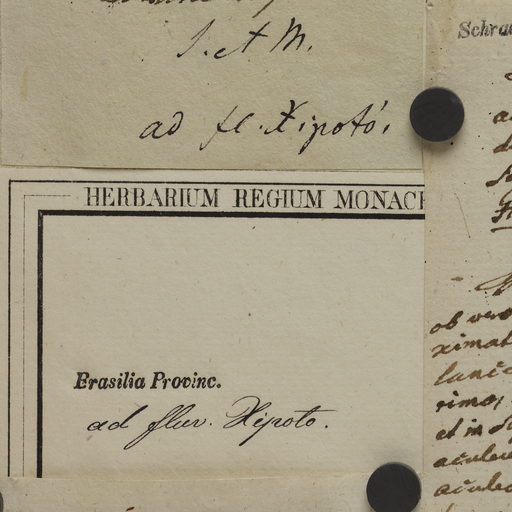 S. et M.
ad fl. Xipotó.
HERBARIUM REGIUM MONAC
Brasilia Provinc.
ad fluv. Xipoto.
Schra
ob vero
ximat
rimo,
et in
aculeu
aculeo